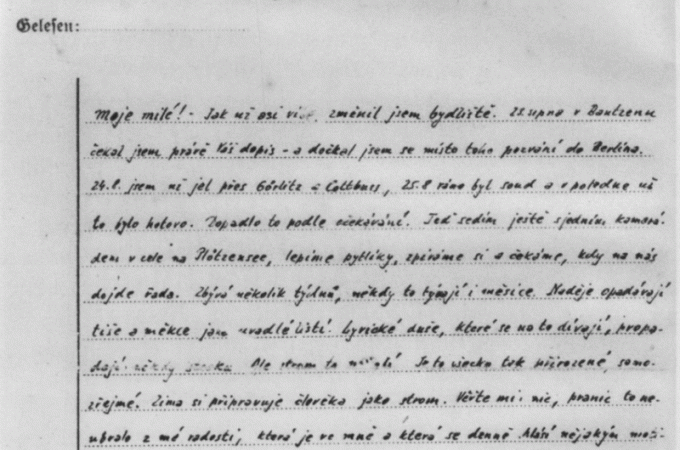 Gelesen:
Moje milé! - Jak už asi víte, změnil jsem bydliště. 23. srpna v Bautzenu
čekal jsem právě Váš dopis - a dočkal jsem se místo toho pozvání do Berlína.
24.8. jsem už jel přes Görlitz a Cottbus, 25.8 ráno byl soud a v poledne už
to bylo hotovo. Dopadlo to podle očekávání. Teď sedím ještě s jedním kamará-
dem v cele na Plötzensee, lepíme pytlíky, zpíváme si a čekáme, kdy na nás
dojde řada. Zbývá několik týdnů, někdy to trvají i měsíce. Naděje opadávají
tiše a měkce jako uvadlé listí. Lyrické duše, které se na to dívají, propa-
dají někdy stesku. Ale strom to nebolí. Je to všecko tak přirozené, samo-
zřejmé. Zima si připravuje člověka jako strom. Věřte mi: nic, pranic to ne-
ubralo z mé radosti, která je ve mně a která se denně hlásí nějakým moti-